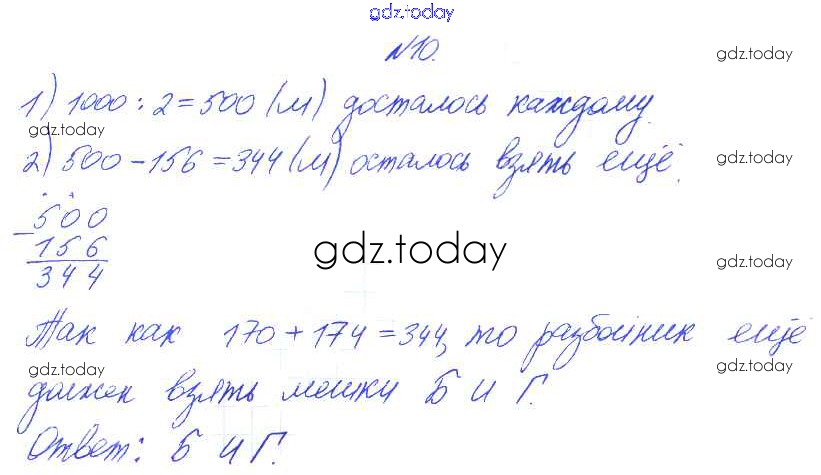 gdz.today
№10.
gdz.today
1) 1000 : 2 = 500 (м) досталось каждому.
gdz.today
2) 500 - 156 = 344 (м) осталось взять ещё.
gdz.today
- 500
156
344
gdz.today
gdz.today
Так как 170 + 174 = 344, то разбойник ещё
gdz.today
gdz.today
должен взять мешки Б и Г.
Ответ: Б и Г.
gdz.today